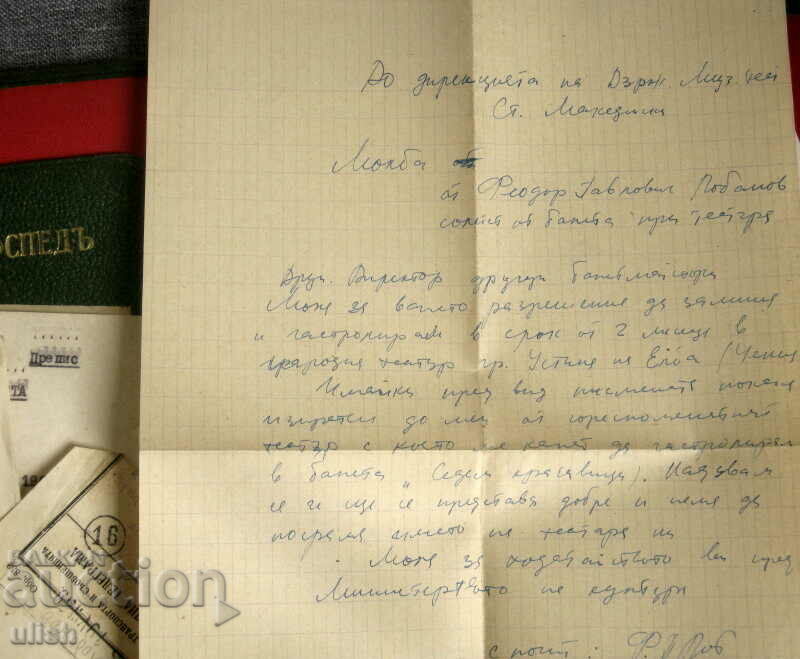 До дирекцията на Държ. Муз. теа
Ст. Македонски
Молба
от Феодор Павлович Лобанов
солист от балета при театъра
Друг. Директор другари балетмайстори
Моля за вашето разрешение да замина
и гастролирам в срок от 2 месеца в
народния театър гр. Устие на Елба (Чехия
Имайки пред вид писмената покана
до мен от гореспоменатия
театър с която ме канят да гастролирам
в балета „Седем красавици). Надявам
се че ще се представя добре и няма да
посрамя името на театъра ни
Моля за ходатайството ви пред
Министерството на култура
с почит:
ОСПЕДЪ
Препис
ТА
16
BALKAN
auction
ulish